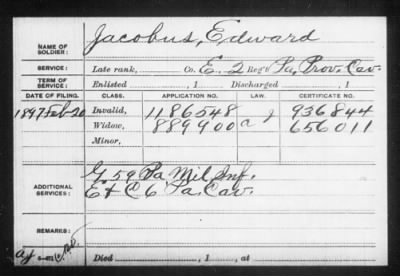 NAME OF SOLDIER: Jacobus, Edward
SERVICE: Late rank, Co. E. 2 Reg't Pa. Prov. Cav.
TERM OF SERVICE: Enlisted , 1 Discharged , 1
DATE OF FILING. CLASS. APPLICATION NO. LAW. CERTIFICATE NO.
1897 Feb 20 Invalid, 1186548 936844
Widow, 889900 656011
Minor,
ADDITIONAL SERVICES: G. 59 Pa Mil Inf.
E & C 6 Pa. Cav.
REMARKS:
Died , 1 , at